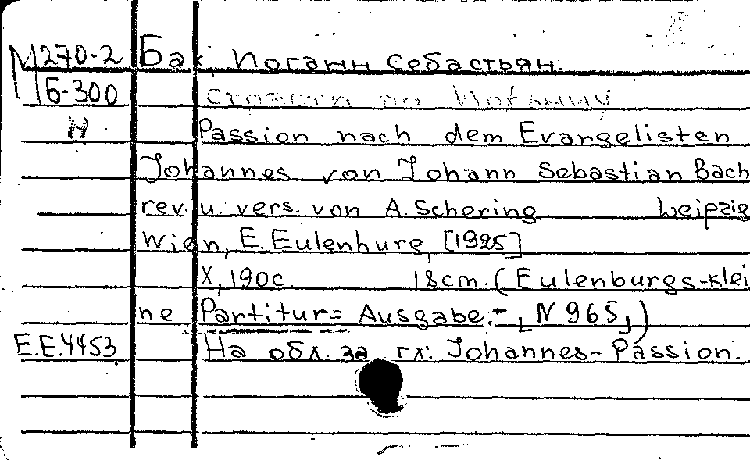 М270-2 Бах, Иоганн Себастьян.
Б-300 Страсти по Иоганну
Н Passion nach dem Evangelisten
Johannes von Johann Sebastian Bach
rev. u. vers. von A. Schering Leipzig
Wien, E. Eulenhure, [1925]
X, 190 c. 18 cm. (Eulenburgs-klei
ne Partitur= Ausgabe.- [N 965])
E.E.4453 На обл. загл: Johannes-Passion.